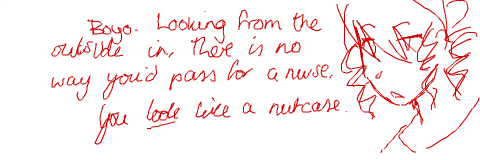 Boyo. Looking from the
outside in, there is no
way you'd pass for a nurse.
You look like a nutcase.